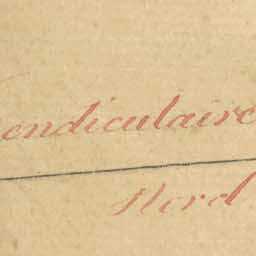 endiculaire
Nord